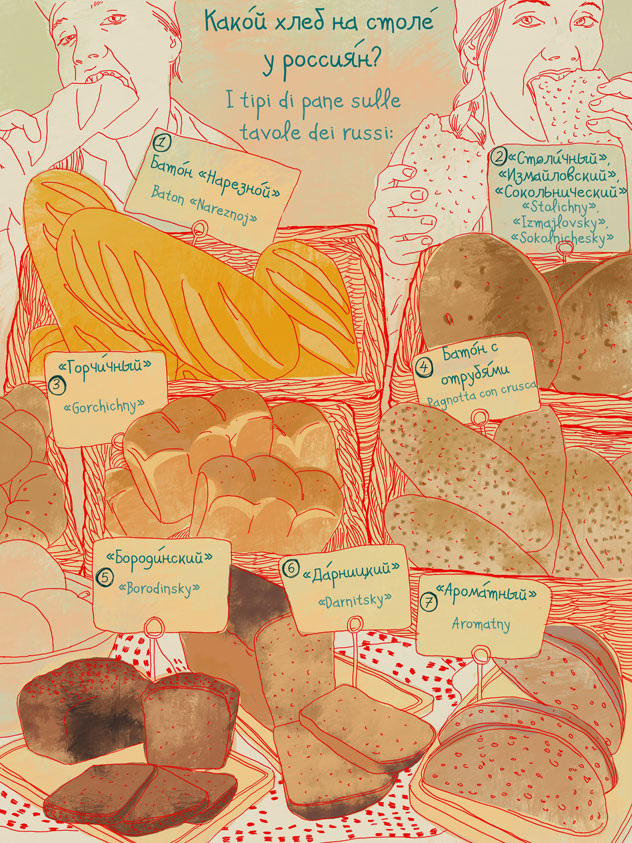 Како́й хлеб на столе́
у россия́н?
I tipi di pane sulle
tavole dei russi:
1
Бато́н «Нарезно́й»
Baton «Nareznoj»
2 «Столи́чный»,
«Измайловский»,
«Сокольнический»
«Stolichny»,
«Izmajlovsky»,
«Sokolnichesky»
«Горчи́чный»
3
«Gorchichny»
4 Бато́н с
отрубя́ми
Pagnotta con crusca
«Бороди́нский»
5 «Borodinsky»
6 «Да́рницкий»
«Darnitsky»
7 «Арома́тный»
Aromatny